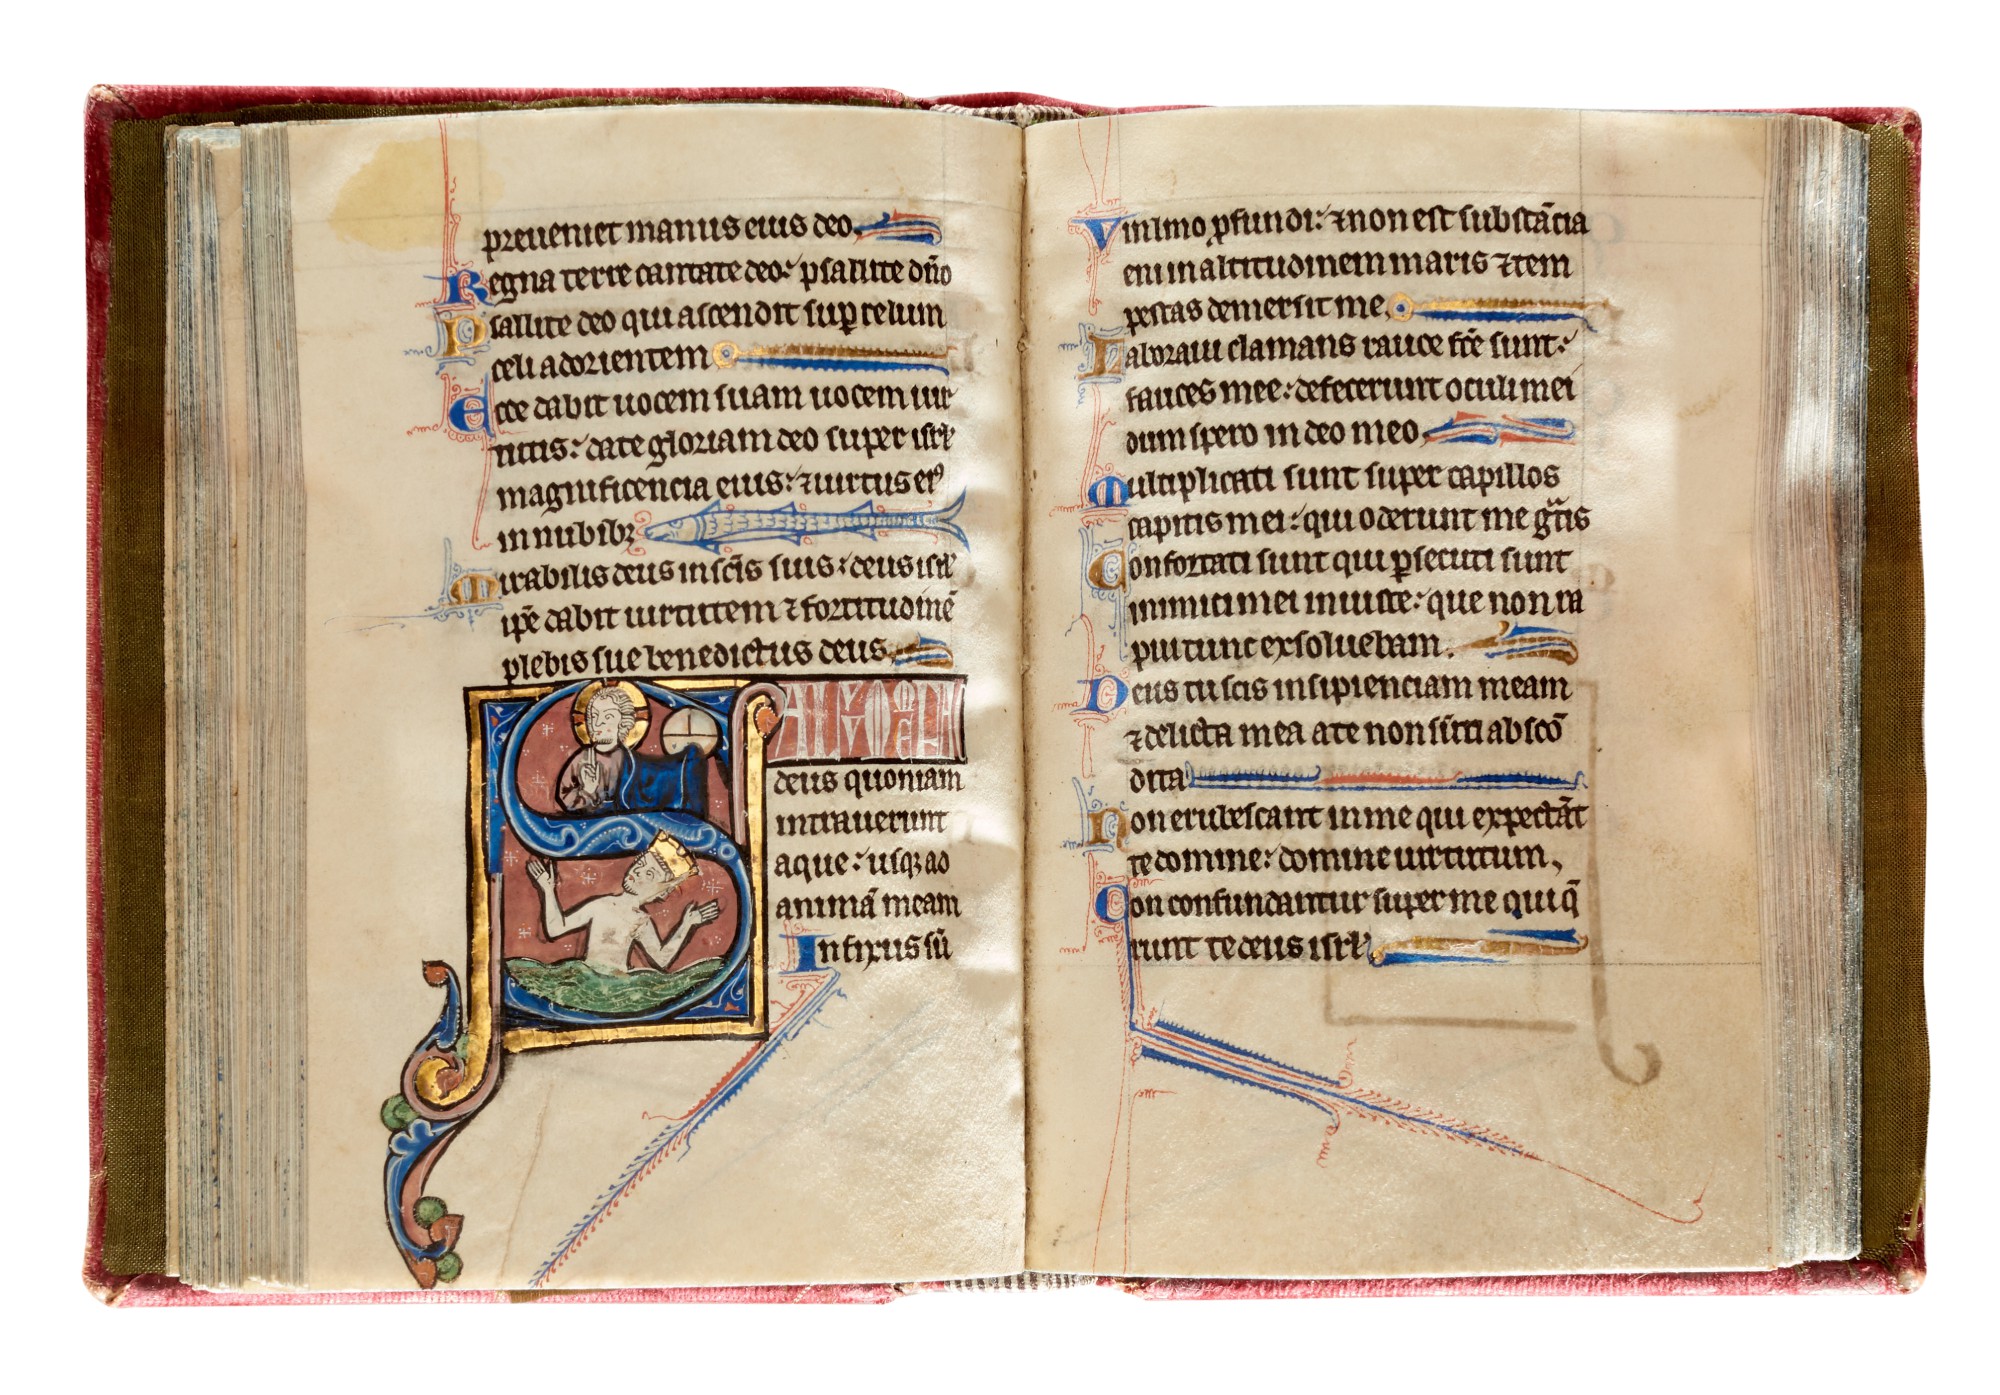 preueniet manus eius deo.
Regna terre cantate deo: psallite dño
Psallite deo qui ascendit sup celum
celi adorientem
Ecce dabit uocem suam uocem uir
tutis: date gloriam deo super isrł
magnificencia eius: ⁊uirtus eiꝰ
in nubibꝫ
Mirabilis deus in sc̃is suis: deus isrł
ip̃e dabit uirtutem ⁊ fortitudinẽ
plebis sue benedictus deus
SALVVM ME FAC
deus quoniam
intrauerunt
aque: usqꝫ ad
animã meam
Infixus sũ
Vinlimo ꝓfundi: ⁊non est substãcia
eni in altitudinem maris ⁊tem
pestas demersit me.
Laboraui clamans rauce fc̃e sunt:
fauces mee: defecerunt oculi mei
dum spero in deo meo.
Multiplicati sunt super capillos
capitis mei: qui oderunt me gᵃtis
Confortati sunt qui ꝑsecuti sunt
inimici mei iniuste: que non ra
pui tunc exsoluebam.
Deus tu scis insipienciam meam
⁊delicta mea ate non sũt abscõ
dita
Non erubescant in me qui expectãt
te domine: domine uirtutum.
Non confundantur super me qui q̃
runt te deus isrł